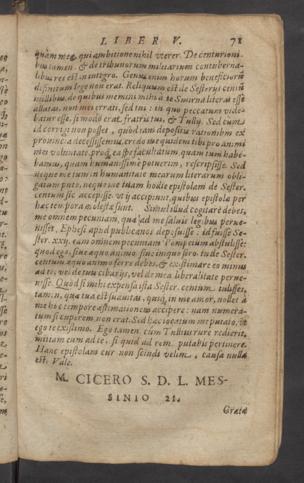 LIBER V. 78
quàm meæ, qui ambitione nihil uterer. De centurionibus
tamen, & de tribunorum militarium contubernalibus
res est in integro. Genus enim horum beneficiorum
definitum lege non erat. Reliquum est de Sestertiis centum
millibus, de quibus memini mihi à te Smyrna literas esse
allatas, non mei errati, sed tui: in quo peccatum videbatur
esse, si modo erat fratris tui, & Tullij. Sed cum
id corrigi non posset, quòd iam depositis rationibus ex
provincia decessissemus, credo me quidem tibi pro animi
mei voluntate, proq́; ea spe facultatum quam tum habebamus,
quàm humanissimè potuerim, rescripsisse. Sed
neque me tum in humanitate mearum literarum obligatum
puto, neque me tuam hodie epistolam de Sester.
centum sic accepisse, vt ij accipiunt, quibus epistolæ per
hæc tempora molestæ sunt. Simul illud cogitare debes,
me omnem pecuniam, quæ ad me salvis legibus pervenisset,
Ephesi apud publicanos deposuisse: id fuisse Sester.
xxij. eam omnem pecuniam Pompeium abstulisse:
quod ego, sive æquo animo, sive iniquo fero: tu de Sester.
centum æquo animo ferre debes, & existimare eo minus
ad te, vel de tuis cibariis, vel de mea liberalitate pervenisse.
Quòd si mihi expensa ista Sester. centum tulisses,
tamen, quæ tua est suavitas, quiq́; in me amor, nolles à
me hoc tempore æstimationem accipere: nam numeratum
si cuperem non erat. Sed hæc iocatum me putato, vt
ego te existimo. Ego tamen cùm Tullius rure redierit,
mittam eum ad te, si quid ad rem putabis pertinere.
Hanc epistolam cur non scindi velim, causa nulla
est. Vale.
M. CICERO S. D. L. MES-
SINIO 21.
Gratæ